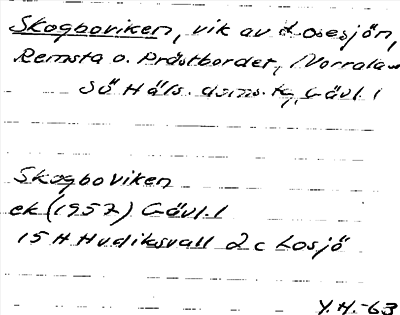 Skogboviken, vik av Losesjön,
Remsta o. Prästbordet, Norrala sn
Sö Häls. doms. tg, Gävl. l
Skogboviken
ek (1957) Gävl. l
15 H Hudiksvall 2 c Losjö
Y.H.-63